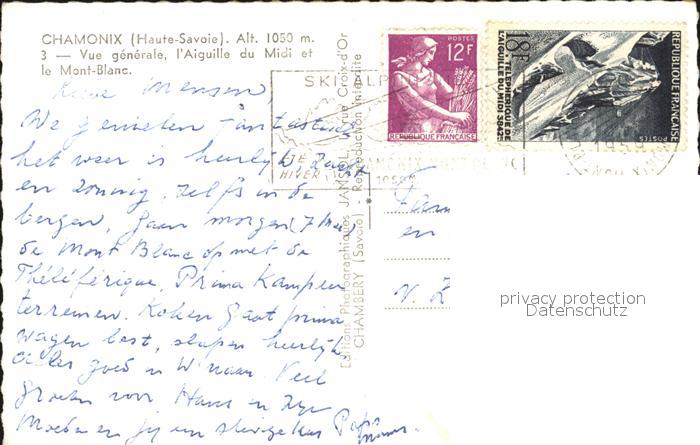 CHAMONIX (Haute-Savoie). Alt. 1050 m.
3 — Vue générale, l'Aiguille du Midi et
le Mont-Blanc.
Mensen,
We genieten fantastisch
het weer is heerlijk,
en zonnig. Zelfs in de
bergen, gaan morgen (7
de Mont Blanc op met de
Théléférique. Prima Kampeer
terreinen. Koken gaat prima
wagen best, slapen heerlijk
alles goed in Veel
groeten voor Hans en
Moeder en jij een Paps
en
v. Z
Editions Photographiques JANSOL, rue Croix-d'Or
CHAMBERY (Savoie) - Reproduction Interdite
SKI ALP
ETE
HIVER
CHAMONIX MONT-BLANC
1959
POSTES
12F
REPUBLIQUE FRANÇAISE
18F
TELEPHERIQUE DE
L'AIGUILLE DU MIDI 3842
REPUBLIQUE FRANÇAISE
POSTES
privacy protection
Datenschutz